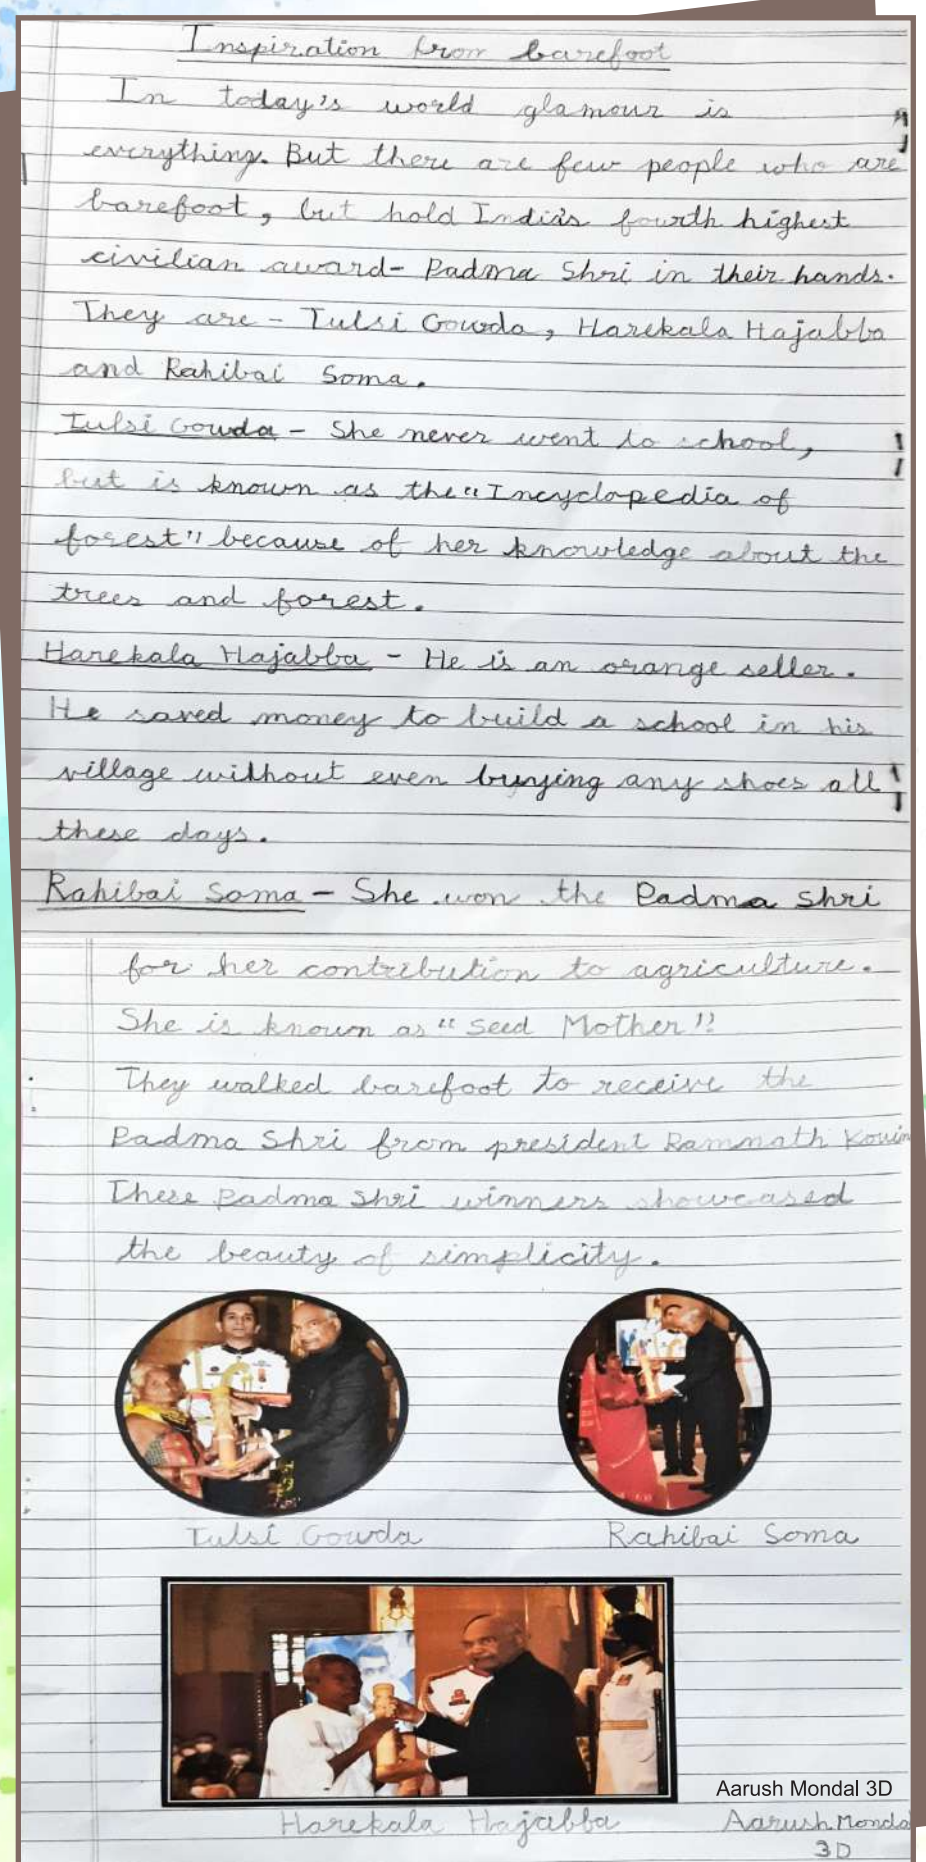 Inspiration from barefoot
In today's world glamour is
everything. But there are few people who are
barefoot, but hold India's fourth highest
civilian award- Padma Shri in their hands.
They are - Tulsi Gowda, Harekala Hajabba
and Rahibai Soma.
Tulsi Gowda - She never went to school,
but is known as the "Incyclopedia of
forest" because of her knowledge about the
trees and forest.
Harekala Hajabba - He is an orange seller.
He saved money to build a school in his
village without even buying any shoes all
these days.
Rahibai Soma - She won the Padma Shri
for her contribution to agriculture.
She is known as "Seed Mother"!
They walked barefoot to receive the
Padma Shri from president Ramnath Kovin
These Padma Shri winners showcased
the beauty of simplicity.
Tulsi Gowda
Rahibai Soma
Aarush Mondal 3D
Harekala Hajabba
Aarush Mondal
3D